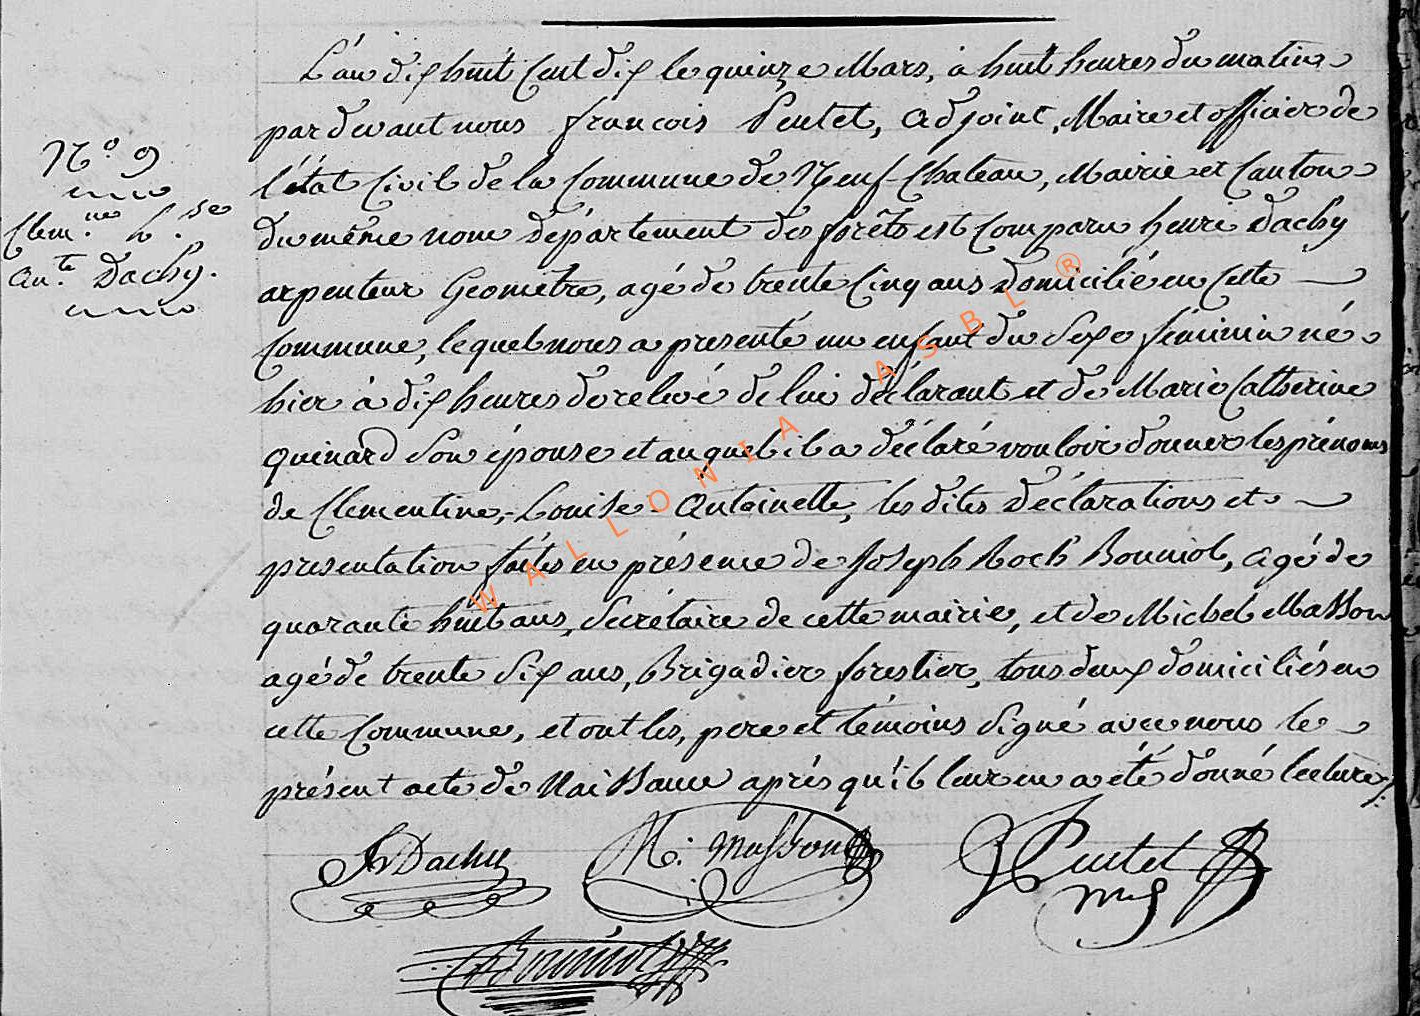 L'an dix huit Cent dix le quinze Mars, à huit heures du matin
par devant nous françois Pentet, adjoint, Maire et officier de
N.° 9
l'état Civil de la Commune de Neuf-Chateau, Mairie et Canton
Clem.ne L.se
du même nom département des forêts est Comparu henri Dachy
an.te Dachy.
arpenteur Géomètre, agé de trente Cinq ans domicilié en Cette
Commune, lequel nous a presenté un enfant du Sexe féminin né
hier à dix heures de relevé de lui déclarant et de Marie Catherine
quinard Son épouse et auquel il a déclaré vouloir donner les prénoms
de Clementine,-Louise-Antoinette, les dites déclarations et
presentation faites en présence de Joseph Roch Bonniol, agé de
quarante huit ans, Secrétaire de cette mairie, et de Michel Masson
agé de trente Six ans, Brigadier forestier, tous deux domiciliés en
cette Commune, et ont les, pere et témoins Signé avec nous le
présent acte de Naissance après qu'il leur en a été donné lecture
hDachy M: Masson Pentet
Bonniol
WALLONIA ASBL ®